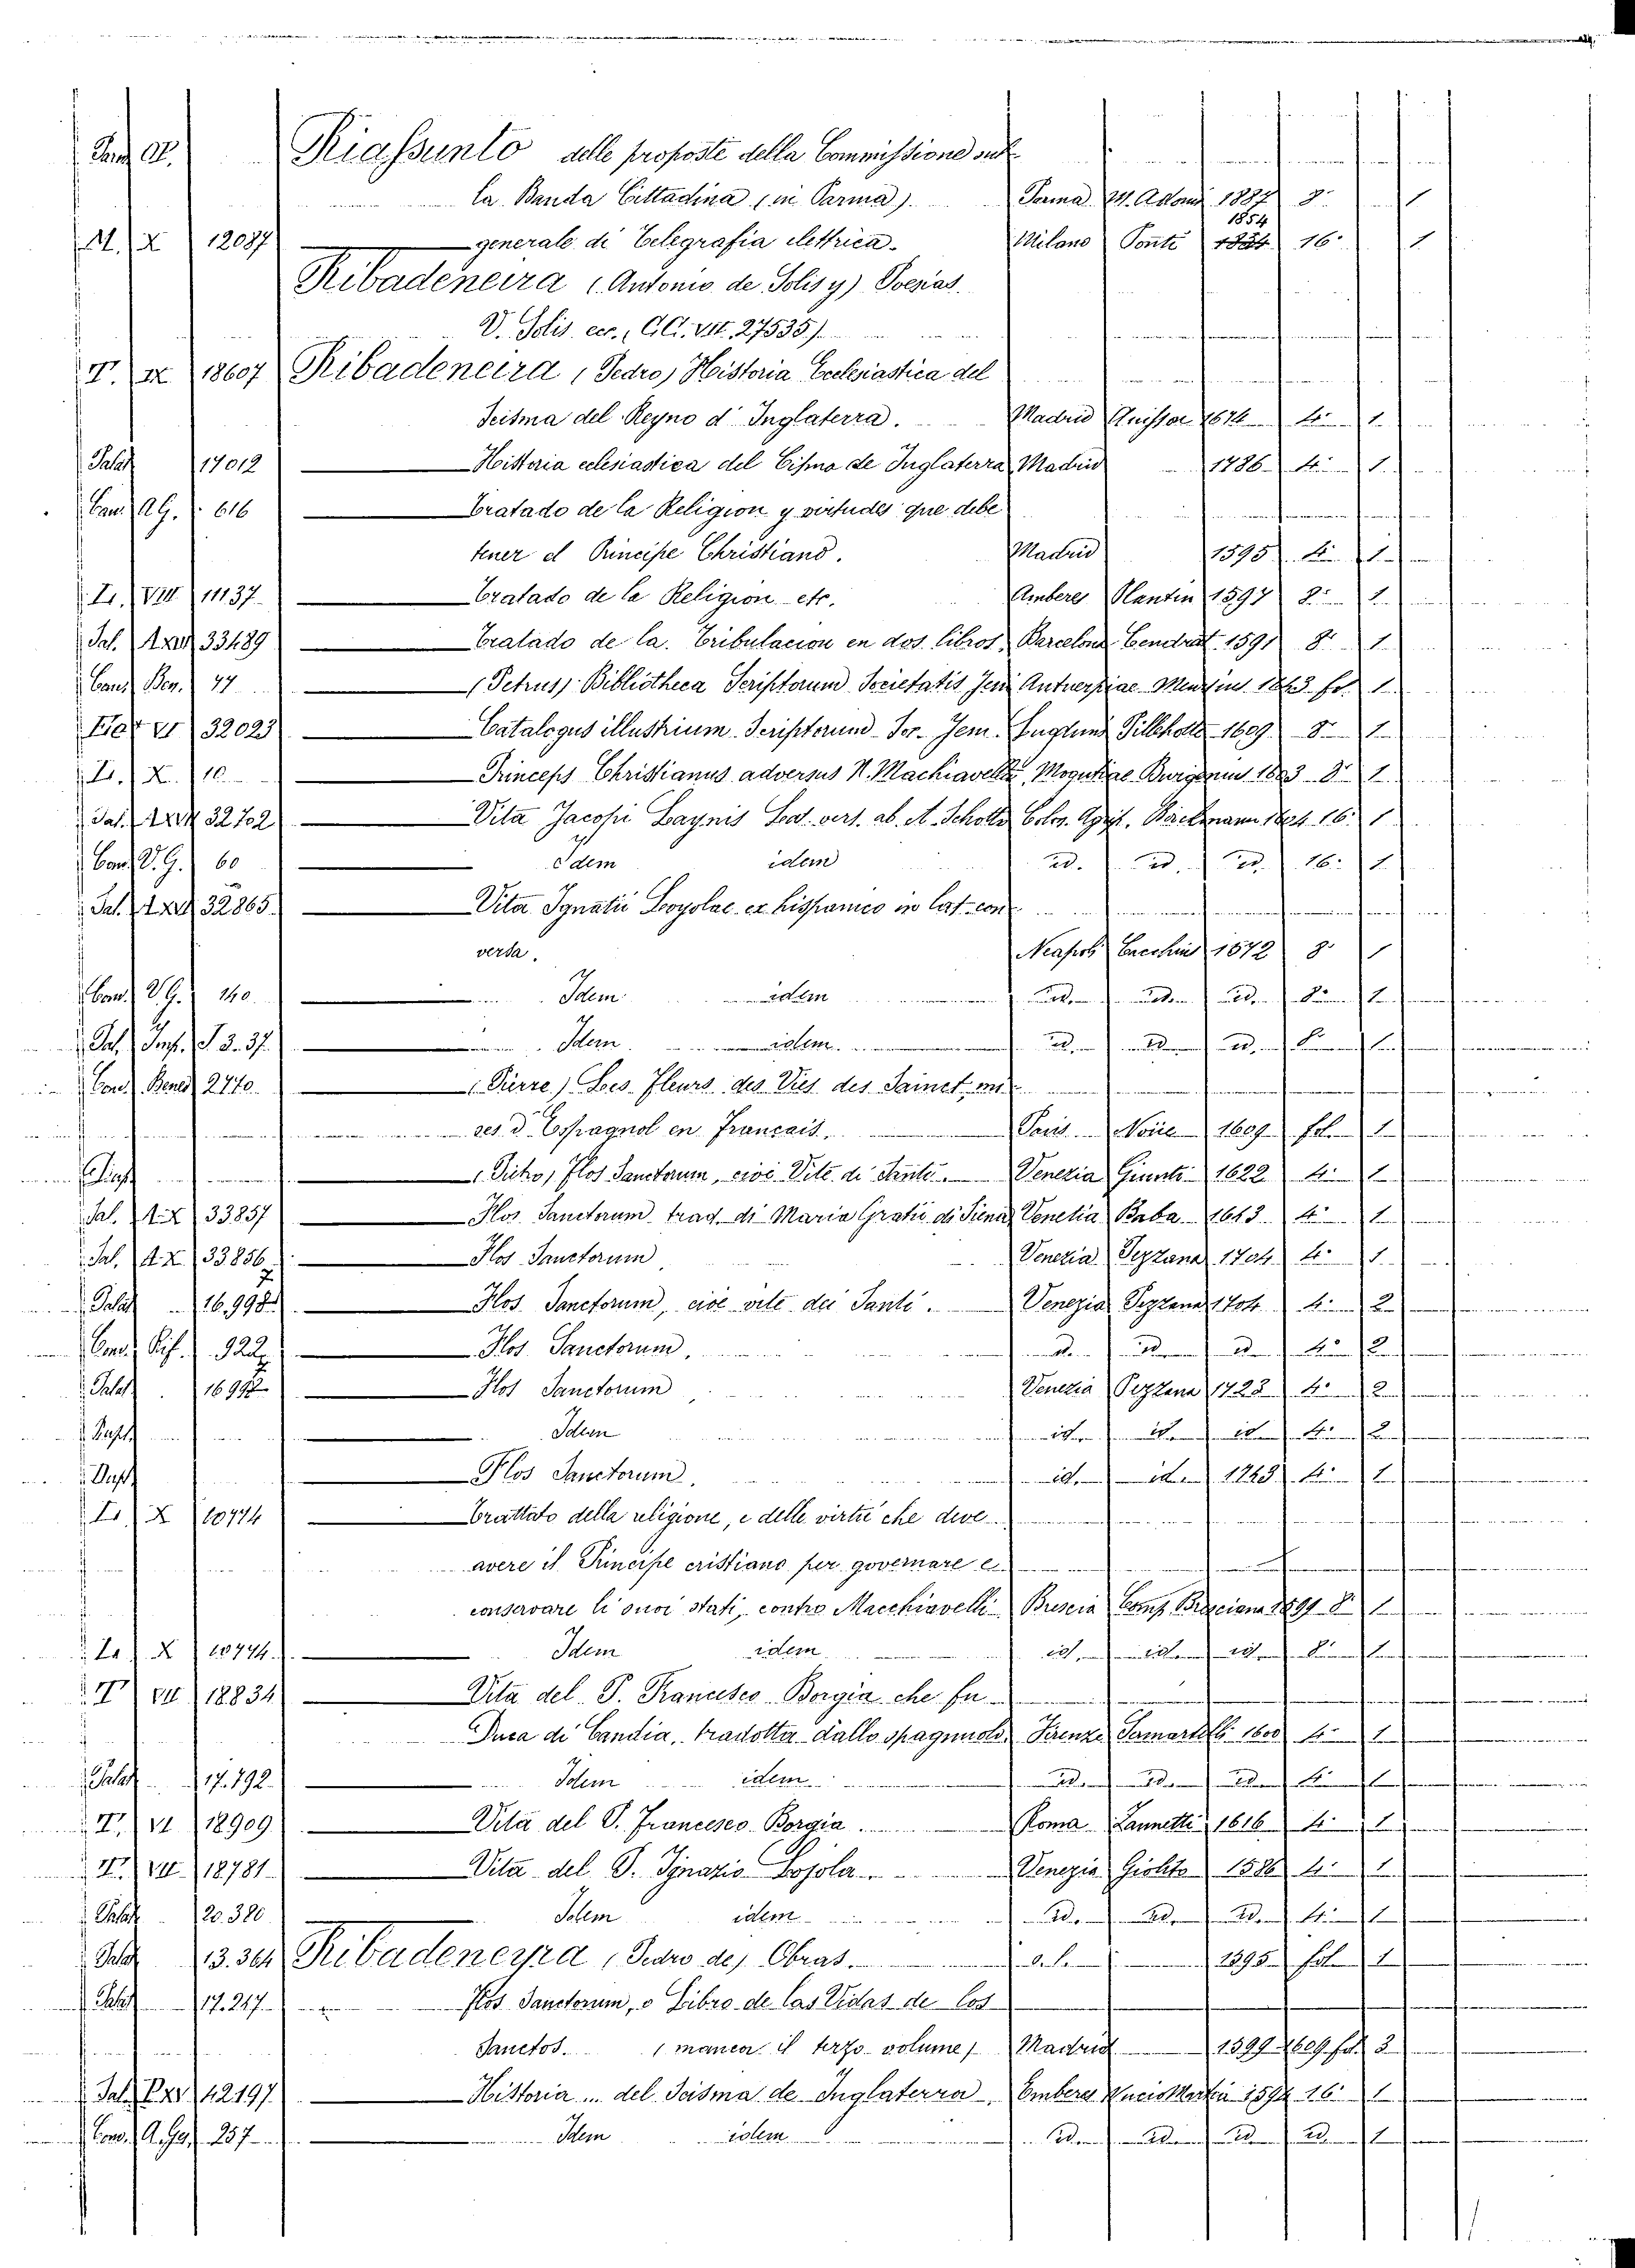 Riassunto delle proposte della Commissione sul
la Banda Cittadina (in Parma). Parma 1887 8° 1
M. X 12087 generale di Telegrafia elettrica. Milano Ponti 1854 16° 1
Ribadeneira (Antonio de Solis y) Poesias.
V. Solis ecc. (CC. VII. 27535)
T. IX 18607 Ribadeneira (Pedro) Historia Ecclesiastica del
Scisma del Reyno d' Inglaterra. Madrid 1674 4° 1
Palat 17012 Historia eclesiastica del Cisma de Inglaterra Madrid 1786 4° 1
Cam. A.G. 616 Tratado de la Religion y virtudes que debe
tener el Principe Christiano. Madrid 1595 4° 1
L. VIII 11137 Tratado de la Religion etc. Amberes Plantin 1597 8° 1
Sal. 33489 Tratado de la Tribulacion en dos libros. Barcelona Cendrat 1591 8° 1
Cans Ben. 77 (Petrus) Bibliotheca Scriptorum Societatis Jesu Antuerpiae fo. 1
32023 Catalogus illustrium Scriptorum Soc. Jesu. Lugduni Pillehotte 1609 8° 1
L. X. 10 Princeps Christianus adversus N. Machiavell. Moguntiae 1603 8° 1
Sal. 32702 Vita Jacopi Laynis Lat. vers. ab. A. Schotto Colon. Agrip. 16° 1
Cans. V.G. 60 Idem idem id. id. id. 16° 1
Sal. 32865 Vita Ignatii Loyolae ex hispanico in lat. con
versa. Neapoli Cacchius 1572 8° 1
Cans. V.G. 140 Idem idem id. id. id. 8° 1
Sal. J. 3. 37. Idem idem id. id. id. 8° 1
Cons. Bened. 2770 (Pierre) Les Fleurs des Vies des Sainct. mi
ses d' Espagnol en Français. Paris 1609 fol. 1
Flos Sanctorum, cioè Vite di Santi. Venezia Giunti 1622 4° 1
Sal. A X 33857 Flos Sanctorum trad. di Maria Gratii di Siena Venetia Baba 1613 4° 1
Sal. A. X. 33856 Flos Sanctorum Venezia Pezzana 1704 4° 1
Palat 16.998 Flos Sanctorum, cioè vite dei Santi. Venezia Pezzana 1704 4° 2
Cons. 922 Flos Sanctorum. id. id. id. 4° 2
Palat 16997 Flos Sanctorum Venezia Pezzana 1723 4° 2
Idem id. id. id. 4° 2
Flos Sanctorum. id. id. 4° 1
L. X 10774 Trattato della religione, e delle virtù che deve
avere il Principe cristiano per governare e
conservare li suoi stati, contro Macchiavelli Brescia Comp. Bresciana 8° 1
L. X 10774 Idem idem id. id. id. 8° 1
T. VII 18834 Vita del P. Francesco Borgia che fu
Duca di Candia, tradotta dallo spagnuolo Firenze Sermartelli 1600 4° 1
Palat 17.792 Idem idem id. id. id. 4° 1
T. VI 18909 Vita del P. Francesco Borgia. Roma Zannetti 1616 4° 1
T. VII 18781 Vita del P. Ignazio Lojola. Venezia Giolito 1586 4° 1
Palat 20.380 Idem idem id. id. id. 4° 1
Palat Ribadeneyra (Pedro de) Obras. s. l. 1595 fol. 1
Palat 17.247 Flos Sanctorum, o Libro de las Vidas de los
Sanctos. (manca il terzo volume) Madrid 1599-1609 fol. 3
Sal. 42197 Historia ... del Scisma de Inglaterra 1594 16° 1
Cons. 257 Idem idem id. id. id. id. 1